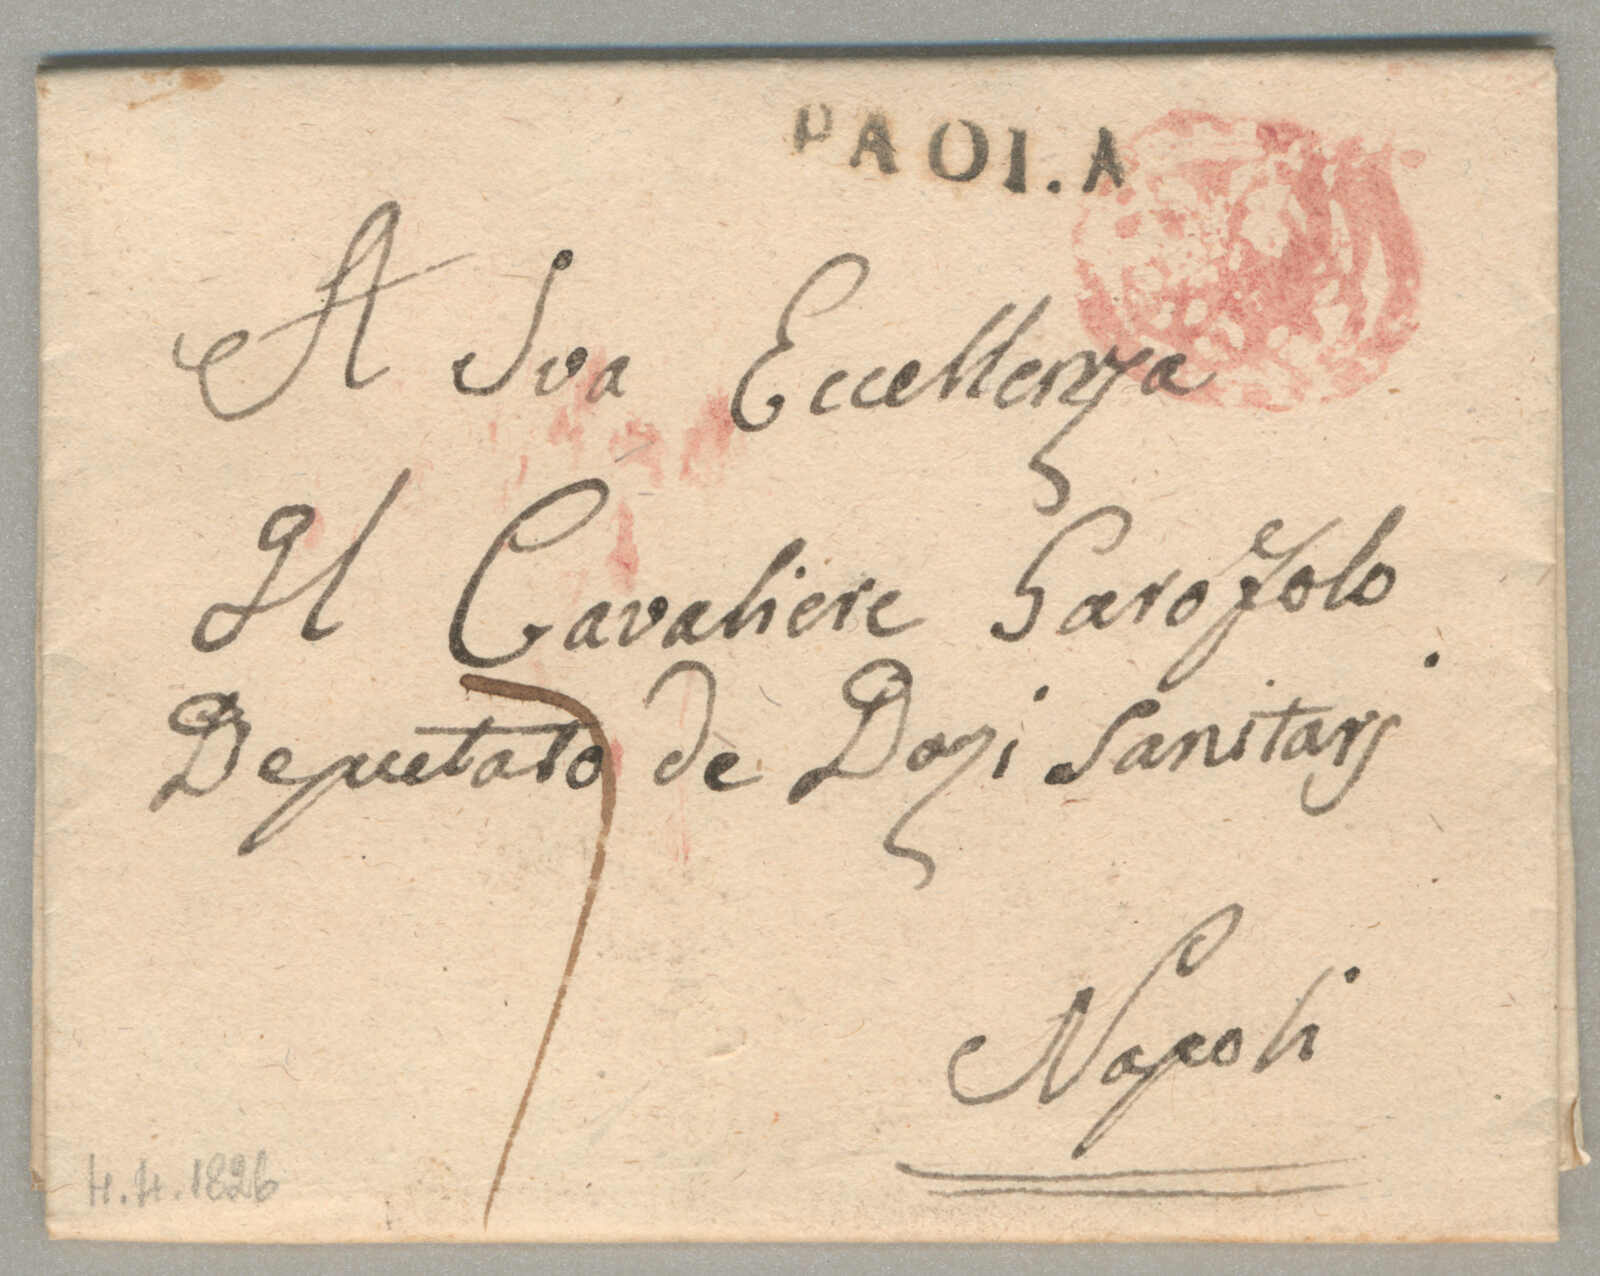 PAOLA
A Sva Eccellenza
Il Cavaliere Garofolo
Deputato de Dazi Sanitarj
Napoli
7
4.4.1826